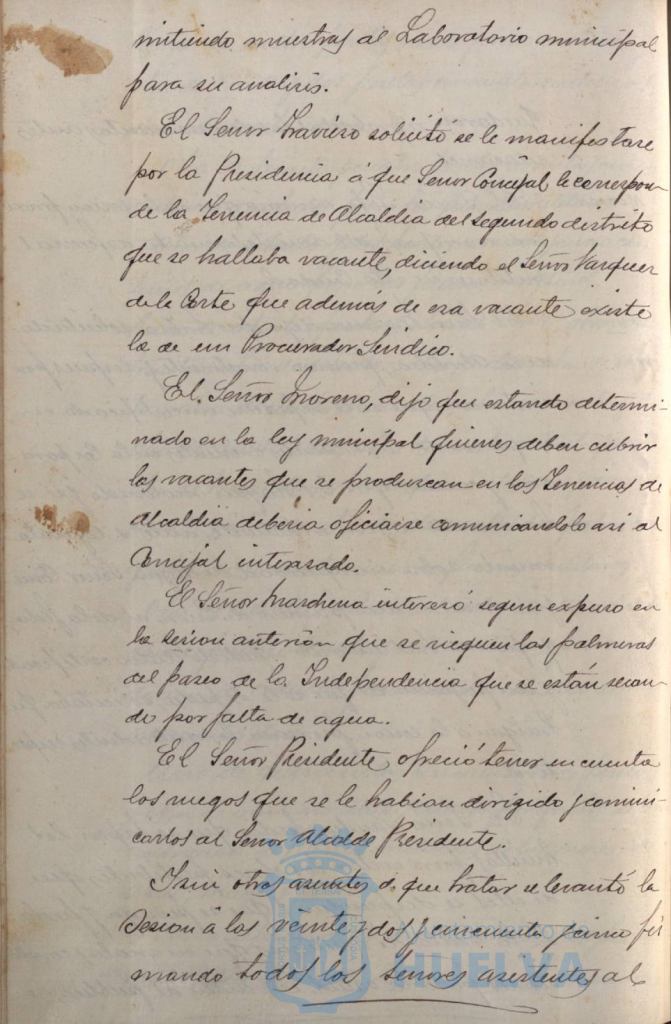 mitiendo muestras al Laboratorio municipal
para su analisis.
El Señor Travieso solicitó se le manifestase
por la Presidencia á que Señor Concejal le correspon-
de la Tenencia de Alcaldia del segundo distrito
que se hallaba vacante, diciendo el Señor Vazquez
de la Corte que además de esa vacante existe
la de un Procurador Sindico.
El Señor Moreno, dijo que estando determi-
nado en la ley municipal quienes deben cubrir
las vacantes que se produzcan en las Tenencias de
Alcaldia deberia oficiarse comunicandolo asi al
Concejal interesado.
El Señor Marchena interesó segun expuso en
la sesion anterior que se rieguen las palmeras
del paseo de la Independencia que se están secan-
do por falta de agua.
El Señor Presidente ofreció tener en cuenta
los ruegos que se le habian dirigido y comuni-
carlos al Señor Alcalde Presidente.
I sin otros asuntos de que tratar se levantó la
Sesion á las veinte y dos y cincuenta y cinco fir
mando todos los Señores asistentes al
HUELVA